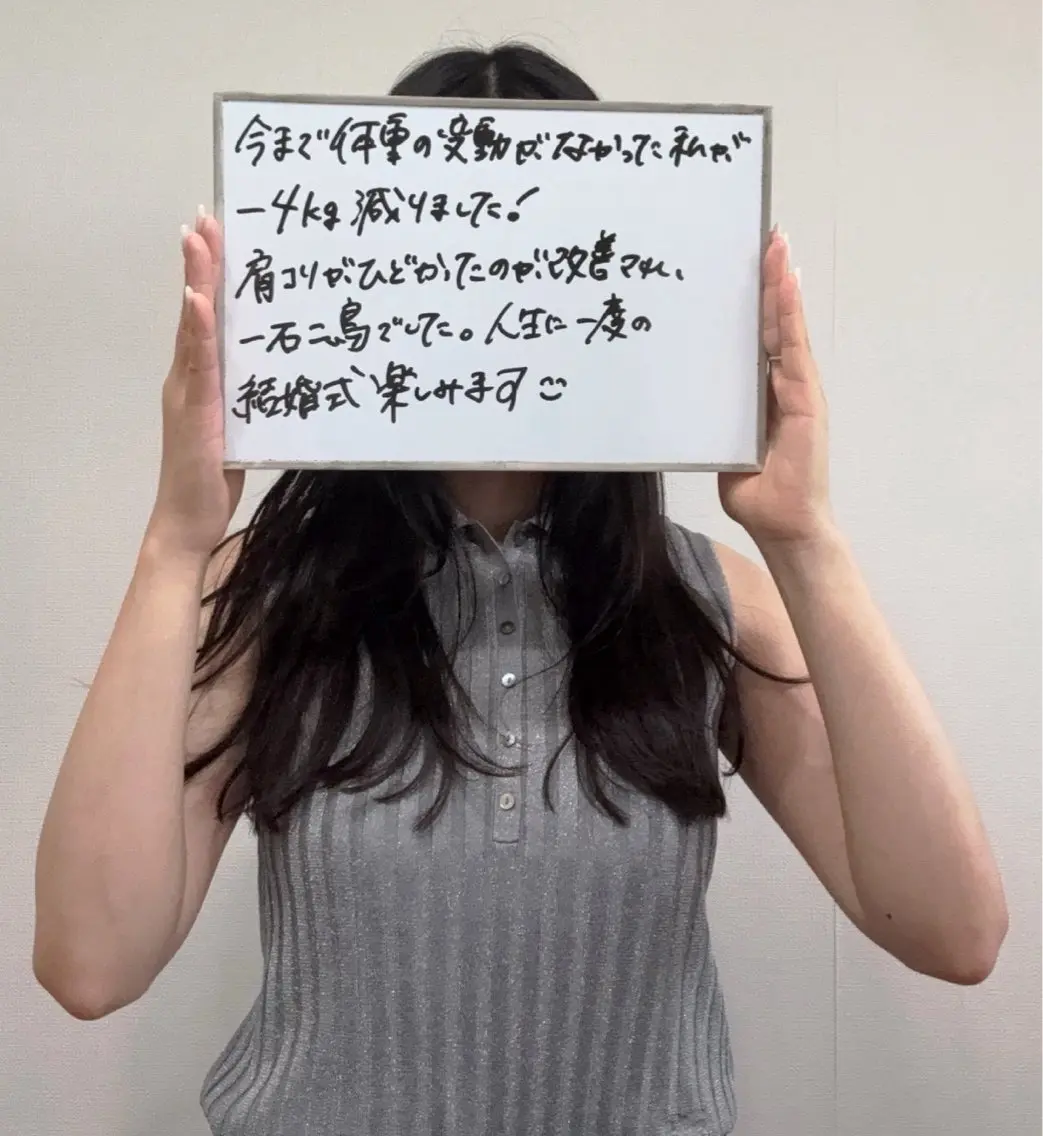 今まで体重の変動がなかった私が
-4kg 減りました!
肩コリがひどかったのが改善され、
一石二鳥でした。人生に一度の
結婚式 楽しみます